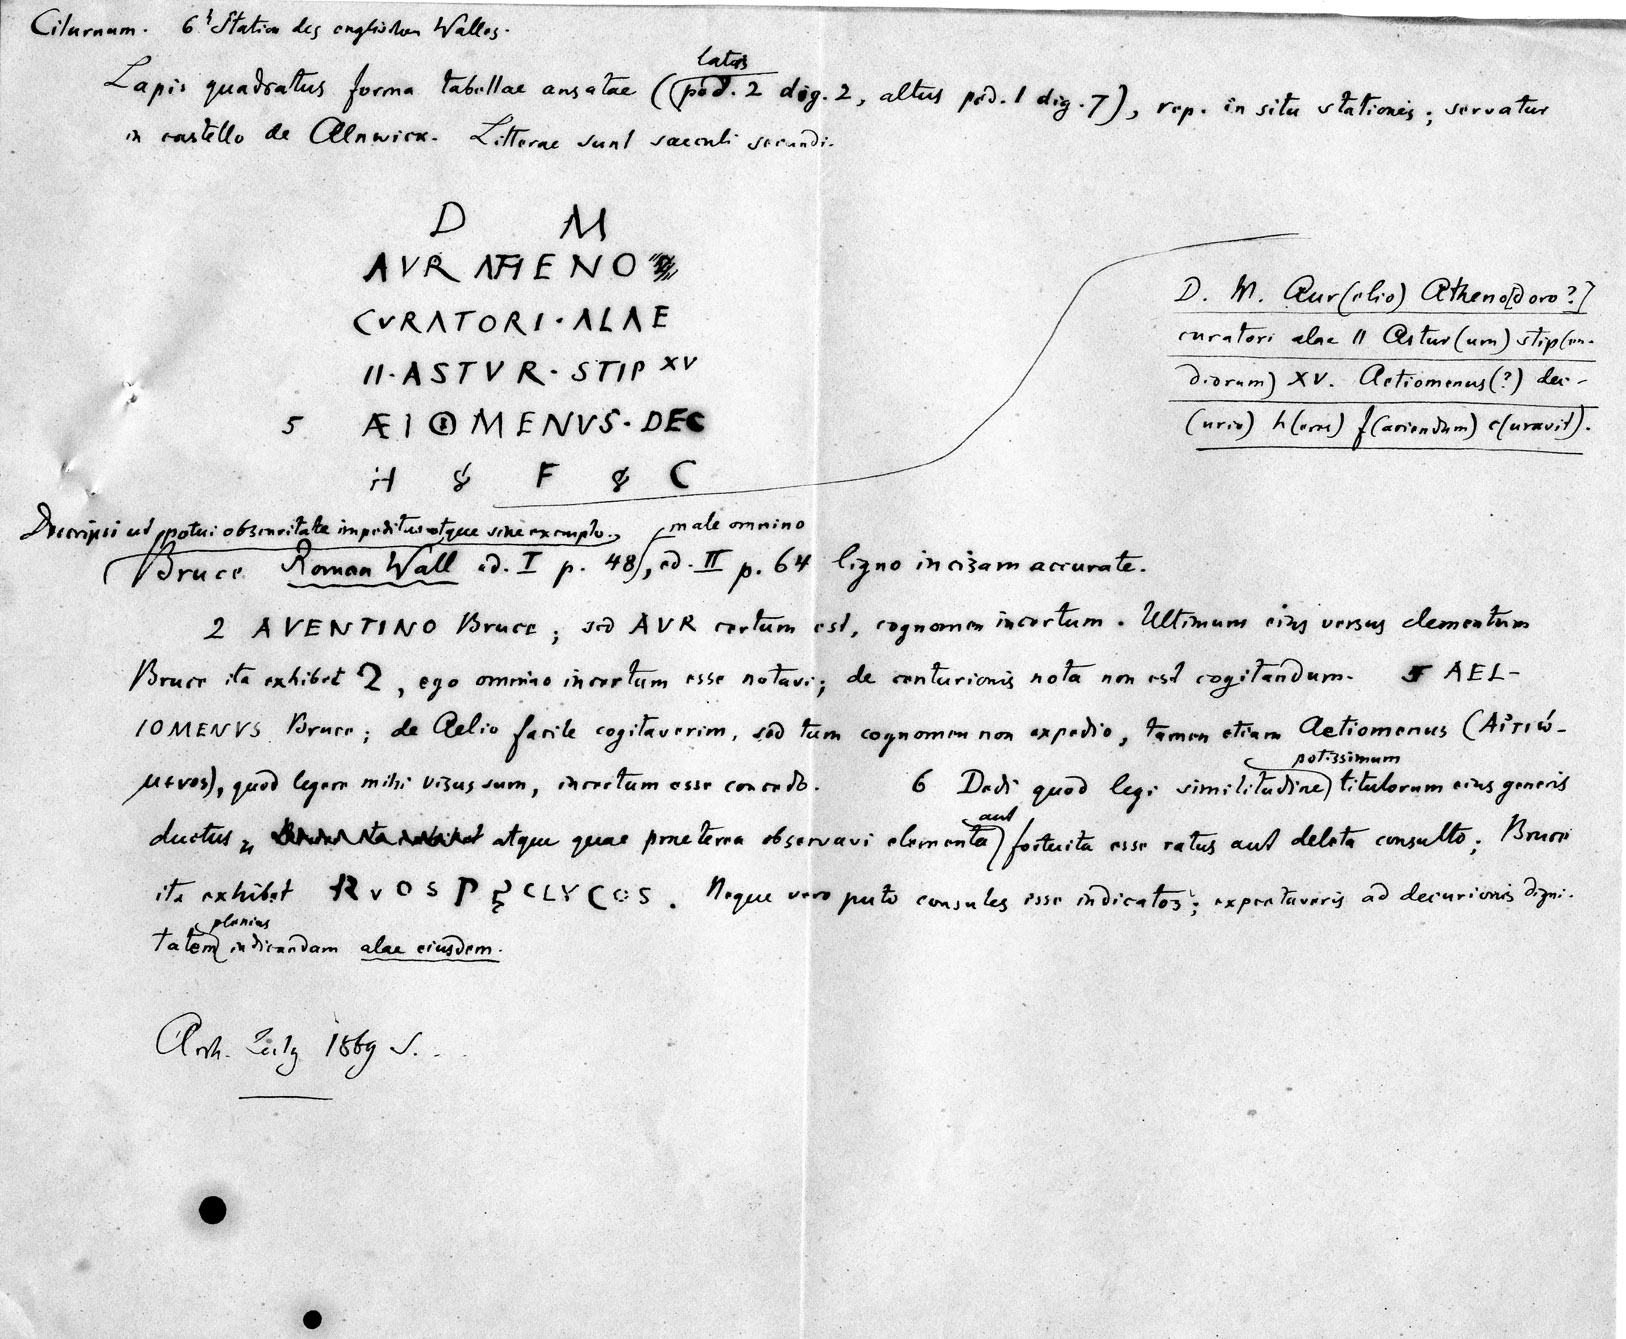 Cilurnum. 6t Station des englischen Walles.
Lapis quadratus forma tabellae ansatae (latus ped. 2 dig. 2, altus ped. 1 dig. 7), rep. in situ stationis; servatur
in castello de Alnwick. Litterae sunt saeculi secundi.
D M
AVR ATHENO
CVRATORI · ALAE
II · ASTVR · STIP XV
5 AEIOMENVS · DEC
H F C
D. M. Aur(elio) Atheno[doro?]
curatori alae II Astur(um) stip(en-
diorum) XV. Aetiomenus(?) dec-
(urio) h(eres) f(aciendum) c(uravit).
Descripsi ut potui obscuritate impeditus atque sine exemplo.
Bruce Roman Wall ed. I p. 48 male omnino, ed. II p. 64 ligno incisam accurate.
2 AVENTINO Bruce; sed AVR certum est, cognomen incertum. Ultimum eius versus elementum
Bruce ita exhibet 2, ego omnino incertum esse notavi; de centurionis nota non est cogitandum. 5 AEL-
IOMENVS Bruce; de Aelio facile cogitaverim, sed tum cognomen non expedio, tamen etiam Aetiomenus (Αἰτιώ-
μενος), quod legere mihi visus sum, incertum esse concedo. 6 Dedi quod legi similitudine potissimum titulorum eius generis
ductus, atque quae praeterea observavi elementa aut fortuita esse ratus aut deleta consulto; Bruce
ita exhibet RVOSP CLYCOS. Neque vero puto consules esse indicatos; expectaveris ad decurionis digni-
tatem plenius indicandam alae eiusdem.
July 1869